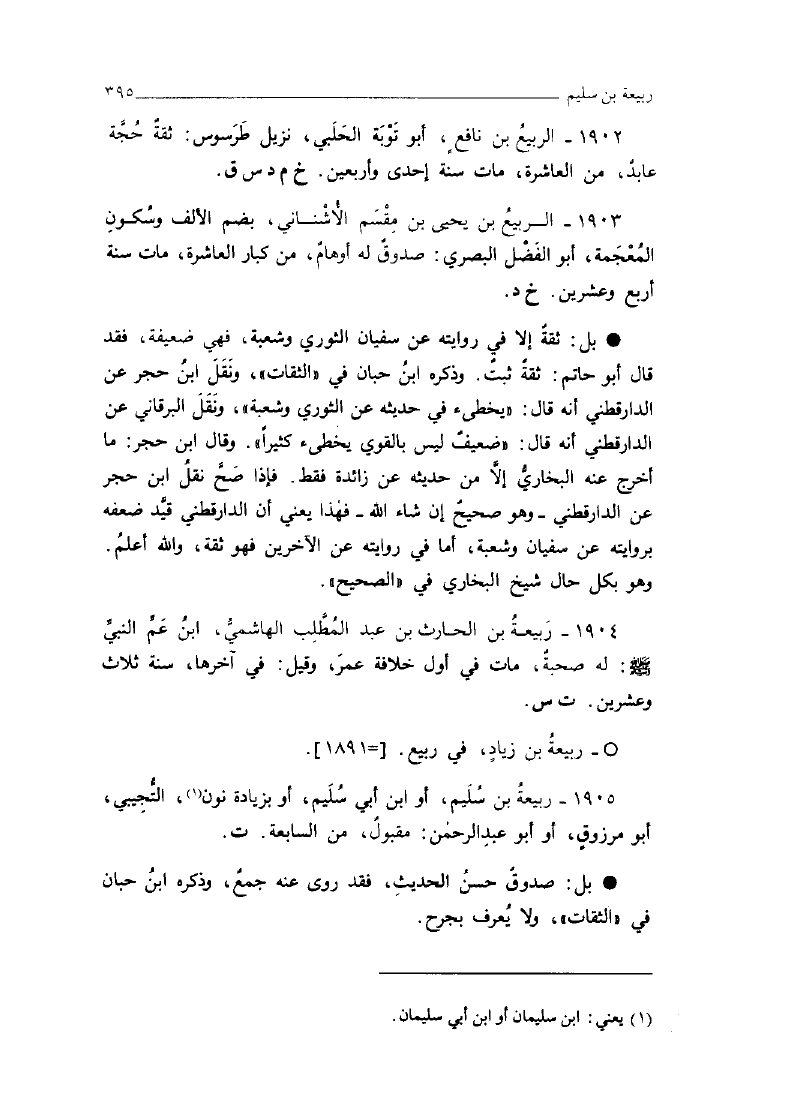 ربيعة بن سليم ٣٩٥
١٩٠٢ ـ الربيعُ بن نافعٍ، أبو تَوْبَة الحَلَبي، نزيل طَرَسوس: ثقةٌ حُجَّة
عابدٌ، من العاشرة، مات سنة إحدى وأربعين. خ م د س ق.
١٩٠٣ ـ الـربيعُ بن يحيى بن مِقْسَم الأُشْنـاني، بضم الألف وسُكـونِ
المُعْجَمة، أبو الفَضْل البصري: صدوقٌ له أوهامٌ، من كبار العاشرة، مات سنة
أربع وعشرين. خ د.
● بل: ثقةٌ إلا في روايته عن سفيان الثوري وشعبة، فهي ضعيفة، فقد
قال أبو حاتم: ثقةٌ ثبتٌ. وذكره ابنُ حبان في «الثقات»، ونَقَلَ ابنُ حجر عن
الدارقطني أنه قال: «يخطىء في حديثه عن الثوري وشعبة»، ونَقَلَ البرقاني عن
الدارقطني أنه قال: «ضعيفٌ ليس بالقوي يخطىء كثيراً». وقال ابن حجر: ما
أخرج عنه البخاريُّ إلاَّ من حديثه عن زائدة فقط. فإذا صَحَّ نقلُ ابن حجر
عن الدارقطني ـ وهو صحيحٌ إن شاء الله ـ فهٰذا يعني أن الدارقطني قيَّد ضعفه
بروايته عن سفيان وشعبة، أما في روايته عن الآخرين فهو ثقة، والله أعلمُ.
وهو بكل حال شيخ البخاري في «الصحيح».
١٩٠٤ ـ رَبيعـةُ بن الحـارث بن عبد المُطَّلِب الهاشميُّ، ابنُ عَمِّ النبيِّ
ﷺ: له صحبةٌ، مات في أول خلافة عمرَ، وقيل: في آخرها، سنة ثلاث
وعشرين. ت س.
○ ـ ربيعةُ بن زيادٍ، في ربيع. [=١٨٩١].
١٩٠٥ ـ ربيعةُ بن سُلَيم، أو ابن أبي سُلَيم، أو بزيادة نون(١)، التُّجِيبي،
أبو مرزوقٍ، أو أبو عبدالرحمٰن: مقبولٌ، من السابعة. ت.
● بل: صدوقٌ حسنُ الحديثِ، فقد روى عنه جمعٌ، وذكره ابنُ حبان
في «الثقات»، ولا يُعرف بجرح.
(١) يعني: ابن سليمان أو ابن أبي سليمان.